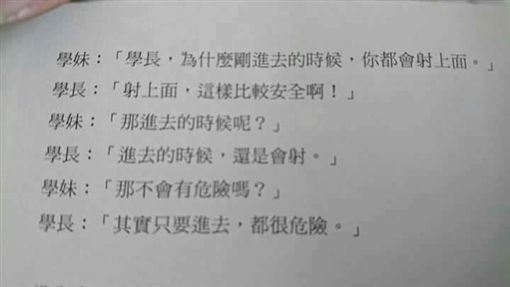 學妹：「學長，為什麼剛進去的時候，你都會射上面。」
學長：「射上面，這樣比較安全啊！」
學妹：「那進去的時候呢？」
學長：「進去的時候，還是會射。」
學妹：「那不會有危險嗎？」
學長：「其實只要進去，都很危險。」